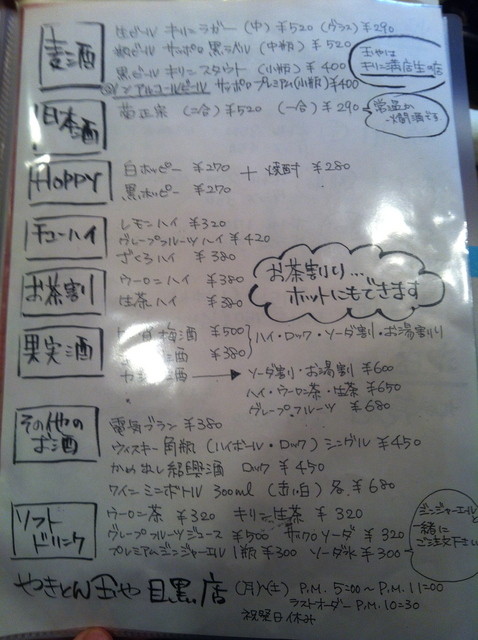 麦酒
生ビール キリン ラガー (中) ¥520 (グラス) ¥290
瓶ビール サッポロ 黒ラベル (中瓶) ¥520
黒ビール キリン スタウト (小瓶) ¥400
ノンアルコールビール サッポロ プレミアム(小瓶) ¥400
玉やは
キリン満店生の店
日本酒
菊正宗 (二合) ¥520 (一合) ¥290
常温or
燗酒
HOPPY
白ホッピー ¥270 + 焼酎 ¥280
黒ホッピー ¥270
チューハイ
レモンハイ ¥320
グレープフルーツハイ ¥420
ざくろハイ ¥380
お茶割
ウーロンハイ ¥380
生茶ハイ ¥380
お茶割り...
ホットにもできます
果実酒
梅酒 ¥500
酒 ¥380
ハイ・ロック・ソーダ割・お湯割り
酒 → ソーダ割・お湯割 ¥600
ハイ・ウーロン茶・生茶 ¥650
グレープフルーツ ¥680
その他の
お酒
電気ブラン ¥380
ウィスキー 角瓶 (ハイボール・ロック) シングル ¥450
かめ出し紹興酒 ロック ¥450
ワイン ミニボトル 300ml (赤・白) 各 ¥680
ソフト
ドリンク
ウーロン茶 ¥320 キリン生茶 ¥320
グレープフルーツジュース ¥500 ザクロソーダ ¥320
プレミアムジンジャーエル 1瓶 ¥300 ソーダ水 ¥300
ジンジャーエールと
一緒に
ご注文下さい
やきとん 玉や 目黒店 (月)〜(土) P.M. 5:00〜P.M. 11:00
ラストオーダー P.M. 10:30
祝祭日休み